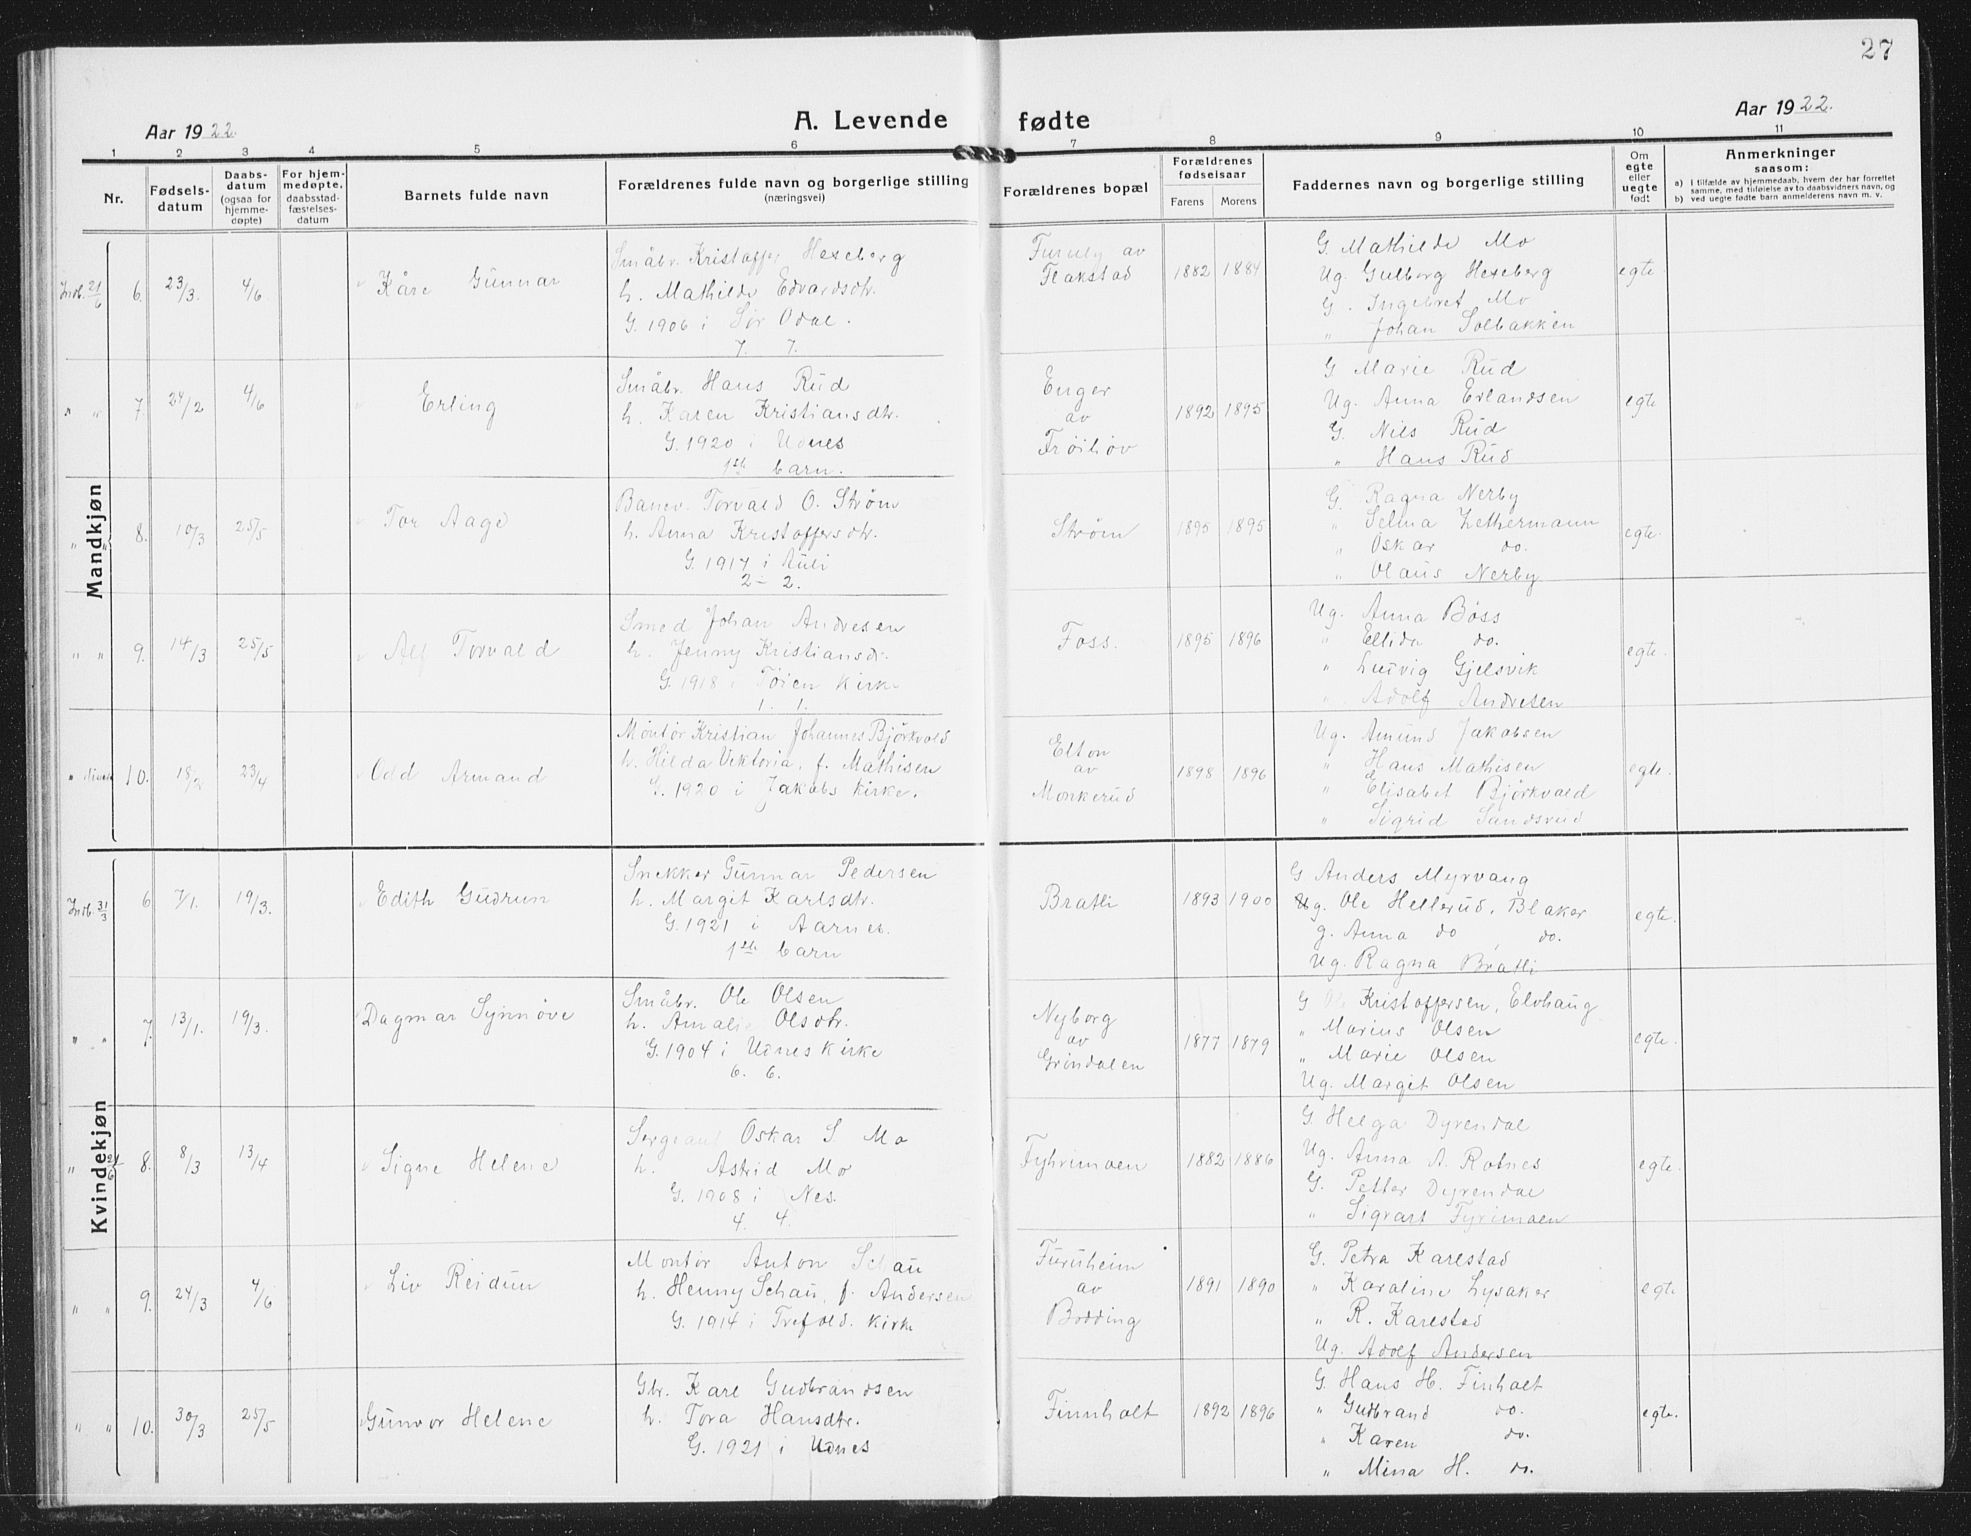 27
Aar 1922.
A. Levende fødte
Aar 1922.
1 2 3 4 5 6 7 8 9 10 11
Nr.
Fødselsdatum
Daabsdatum (ogsaa for hjemmedøpte)
For hjemmedøpte, daabsstadfæstelsesdatum
Barnets fulde navn
Forældrenes fulde navn og borgerlige stilling
(næringsvei)
Forældrenes bopæl
Forældrenes fødselsaar
Farens Morens
Faddernes navn og borgerlige stilling
Om egte eller uegte født
Anmerkninger
saasom:
a) I tilfælde av hjemmedaab, hvem der har forrettet samme, med tilføielse av to daabsvidners navn, og
b) ved uegte fødte barn anmelderens navn m. v.
Mandkjøn
Indb. 21/6 6. 23/3. 4/6 Kåre Gunnar
Småbr. Kristoffer Hexeberg
h. Mathilde Edvardsdtr.
G. 1906 i Sør Odal.
7. 7.
Furuly av
Flakstad
1882 1884
G. Mathilde Mo
Ug. Gulborg Hexeberg
G. Ingebret Mo
" Johan Solbakken
egte.
" " 7. 24/2 4/6 Erling
Småbr. Hans Rud
h. Karen Kristiansdtr.
G. 1920 i Udnes
1ste barn.
Enger
av
Frøihov
1892 1895
G. Marie Rud
Ug. Anna Erlandsen
G. Nils Rud
" Hans Rud
egte
" " 8. 10/3 25/5 Tor Aage
Banev. Torvald O. Strøm
h. Anna Kristoffersdtr.
G. 1917 i Auli
2 - 2.
Strøm
1895 1895
G. Ragna Nerby
" Selma Zethermann
" Oskar do.
" Olaus Nerby
egte.
" " 9. 14/3 25/5 Alf Torvald
Smed Johan Andresen
h. Jenny Kristiansdr.
G. 1918 i Tøien kirke
1. 1.
Foss.
1895 1896
Ug. Anna Bøss
" Ellida do.
" Ludvig Gjelsvik
" Adolf Andresen
egte.
" 10. 18/2 23/4 Odd Armand
Montør Kristian Johannes Bjørkvold
h. Hilda Viktoria, f. Mathisen
G. 1920 i Jakobs kirke.
Elton
av
Monkerud
1898 1896
Ug. Amund Jakobsen
" Hans Mathisen
" Elisabet Bjørkvold
" Sigrid Sandsrud
egte.
Kvindekjøn
Indb. 31/3 6 7/1. 19/3. Edith Gudrun
Snekker Gunnar Pedersen
h. Margit Karlsdtr.
G. 1921 i Aarnes.
1ste barn
Bratli
1893 1900
G Anders Myrvang
Ug. Ole Hellerud, Blaker
g. Anna do , do.
Ug. Ragna Bratli
egte.
" " 7. 13/1. 19/3. Dagmar Synnøve
Småbr. Ole Olsen
h. Amalie Olsdtr.
G. 1904 i Udnes kirke
6. 6.
Nyborg
av
Grøndalen
1877 1879
G Kristoffersen, Elvhaug
" Marius Olsen
" Marie Olsen
Ug. Margit Olsen
egte.
" 8. 8/3 13/4 Signe Helene
Sergeant Oskar S. Mo
h. Astrid Mo
G. 1908 i Nes.
4. 4.
Fyhrimoen
1882 1886
G. Helga Dyrendal
Ug. Anna A. Rotnes
G. Petter Dyrendal
" Sigvart Fyrimoen
egte.
" " 9. 24/3 4/6 Liv Reidun
Montør Anton Schau
h. Henny Schau, f. Andersen
G. 1914 i Trefold. kirke
Furuheim
av
Bodding
1891 1890
G. Petra Karestad
" Karoline Lysaker
" R. Karestad
Ug. Adolf Andersen
egte
" " 10. 30/3 25/5 Gunvor Helene
Gbr. Karl Gudbrandsen
h. Tora Hansdtr.
G. 1921 i Udnes
Finnholt
1892 1896
G. Hans H. Finholt
" Gudbrand do.
" Karen do.
" Mina H. do.
egte.